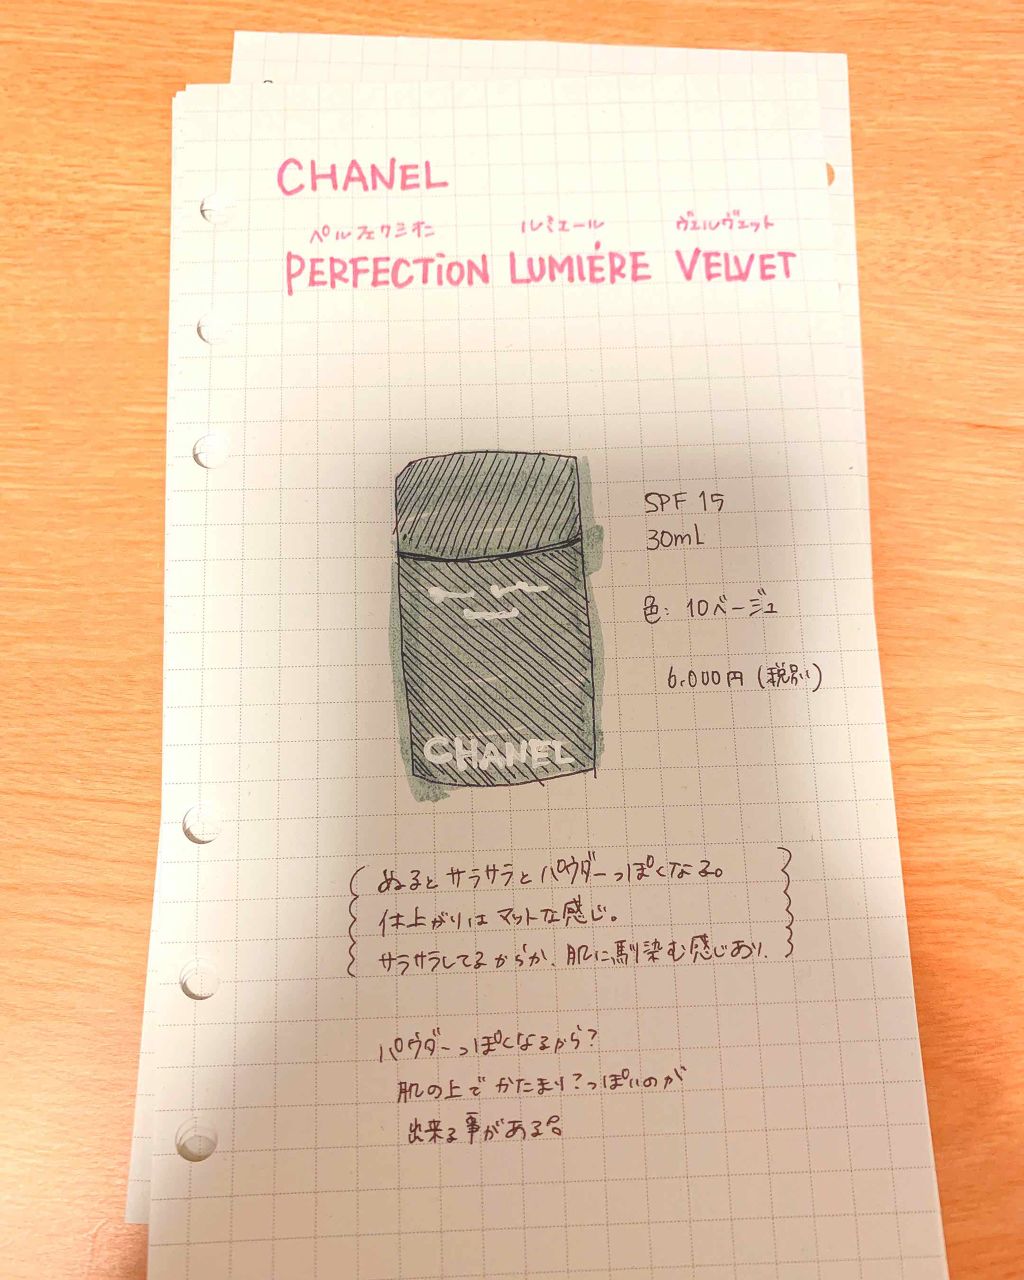 CHANEL
ペルフェクシオン ルミエール ヴェルヴェット
PERFECTION LUMIÉRE VELVET
SPF 15
30mL
色: 10ベージュ
6,000円 (税別)
CHANEL
ぬるとサラサラとパウダーっぽくなる。
仕上がりはマットな感じ。
サラサラしてるからか、肌に馴染む感じあり。
パウダーっぽくなるから?
肌の上でかたまり?っぽいのが
出来る事がある。